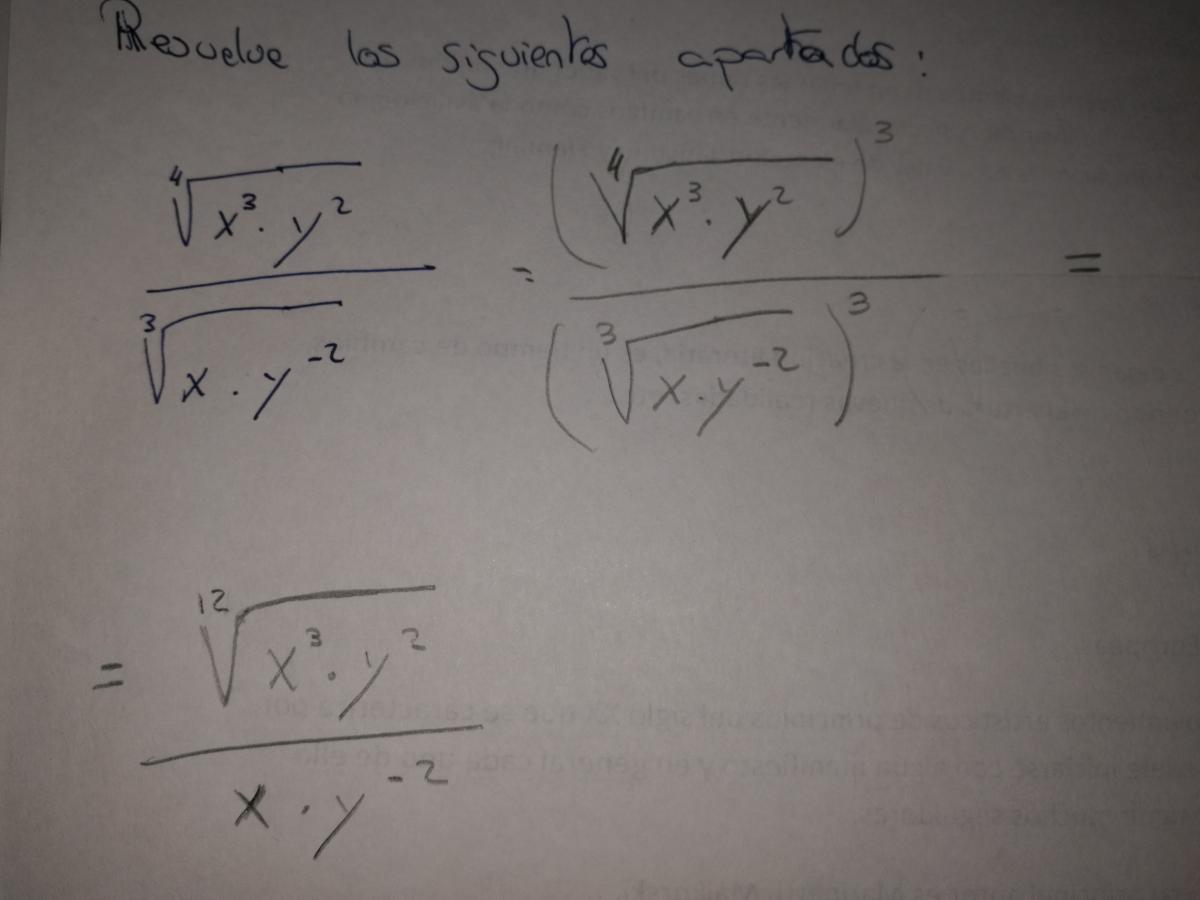 Resuelve los siguientes apartados:
\frac{\sqrt[4]{x^3 \cdot y^2}}{\sqrt[3]{x \cdot y^{-2}}} = \frac{(\sqrt[4]{x^3 \cdot y^2})^3}{(\sqrt[3]{x \cdot y^{-2}})^3} =
= \frac{\sqrt[12]{x^3 \cdot y^2}}{x \cdot y^{-2}}